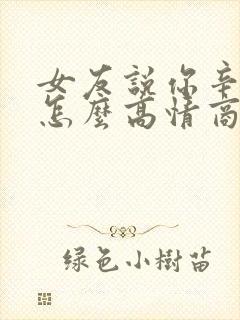 女友說你辛
怎麼高情商
綠色小樹苗